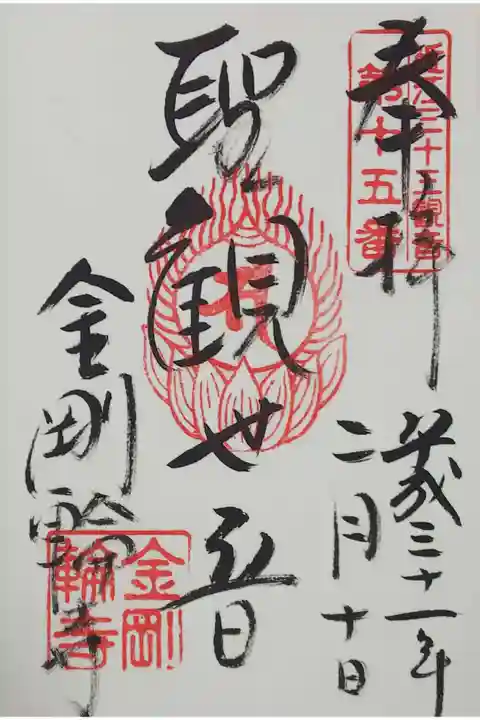 奉拝
江三十三観音
第十五番
平成三十一年
二月十日
聖観世音
金剛輪寺
金剛
輪寺